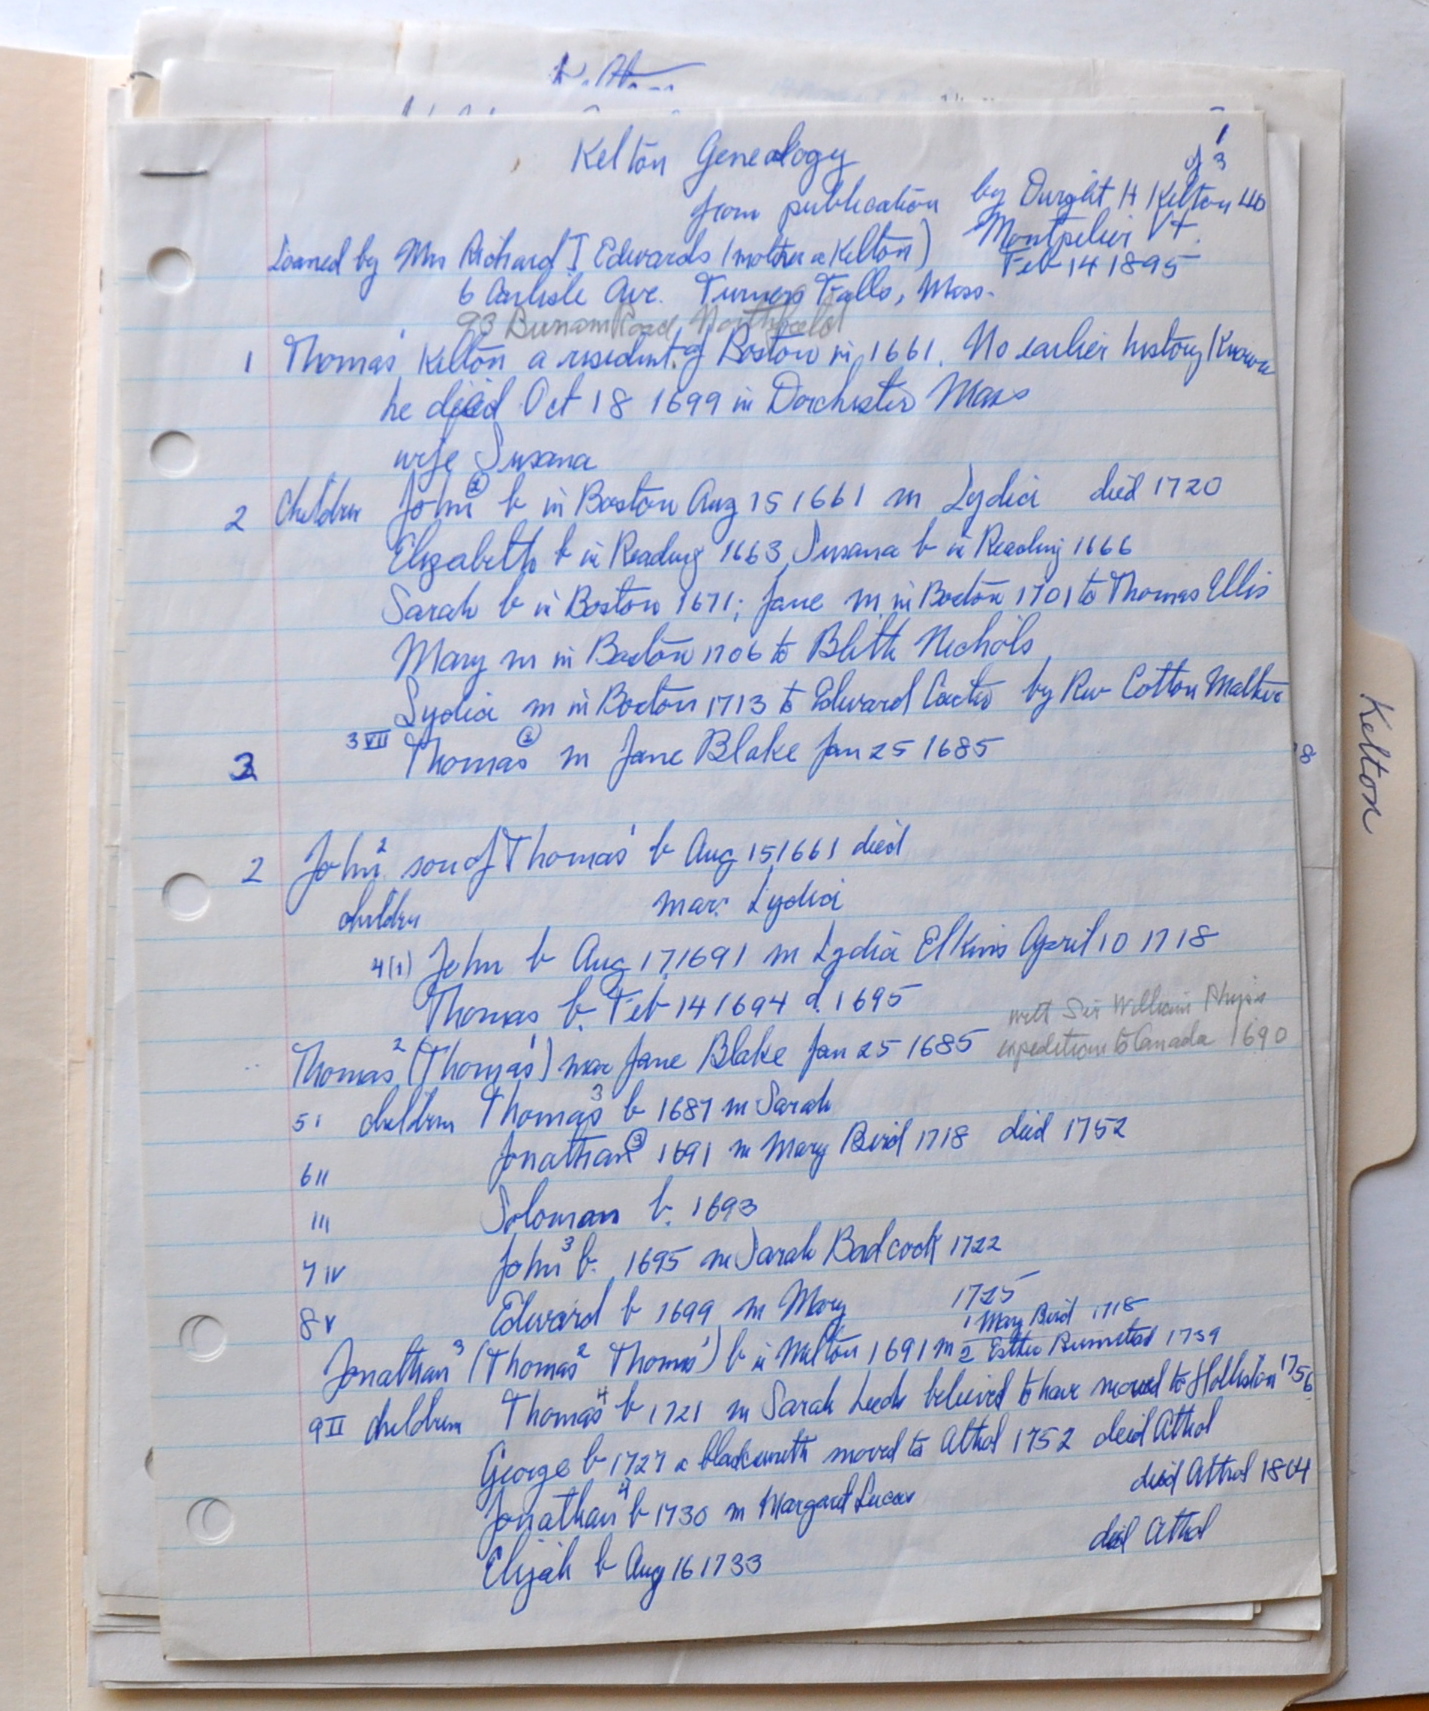 Kelton Genealogy
1 of 3
from publication by Dwight H Kelton
Montpelier Vt.
Feb 14 1895
Loaned by Mrs Richard I Edwards (mother a Kelton)
6 Carlisle Ave. Turners Falls, Mass.
93 Road Northfield
1 Thomas¹ Kelton a resident of Boston in 1661. No earlier history known
he died Oct 18 1699 in Dorchester Mass
wife Susana
2 Children John② b in Boston Aug 15 1661 m Lydia died 1720
Elizabeth b in Reading 1663, Susana b in Reading 1666
Sarah b in Boston 1671; Jane m in Boston 1701 to Thomas Ellis
Mary m in Boston 1706 to Blith Nichols
Lydia m in Boston 1713 to Edward by Rev Cotton Mather
3 3 VII Thomas② m Jane Blake Jan 25 1685
2 John² son of Thomas¹ b Aug 15 1661 died
mar. Lydia
children
4(1) John b Aug 17 1691 m Lydia Elkins April 10 1718
Thomas b. Feb 14 1694 d. 1695
Thomas² (Thomas¹) mar Jane Blake Jan 25 1685 with Sir William Phips
expedition to Canada 1690
5 I children Thomas³ b 1687 m Sarah
6 II Jonathan③ 1691 m Mary Bird 1718 died 1752
III Soloman b. 1693
7 IV John³ b. 1695 m Sarah Badcock 1722
8 V Edward b 1699 m Mary 1725
Jonathan³ (Thomas² Thomas¹) b in Milton 1691 m 1 Mary Bird 1718
2 Esther 1739
9 II children Thomas⁴ b 1721 m Sarah Leeds believed to have moved to Holliston 1756
George b 1727 a blacksmith moved to Athol 1752 died Athol
Jonathan⁴ b 1730 m Margaret Lucas died Athol 1804
Elijah b Aug 16 1733 died Athol
Kelton